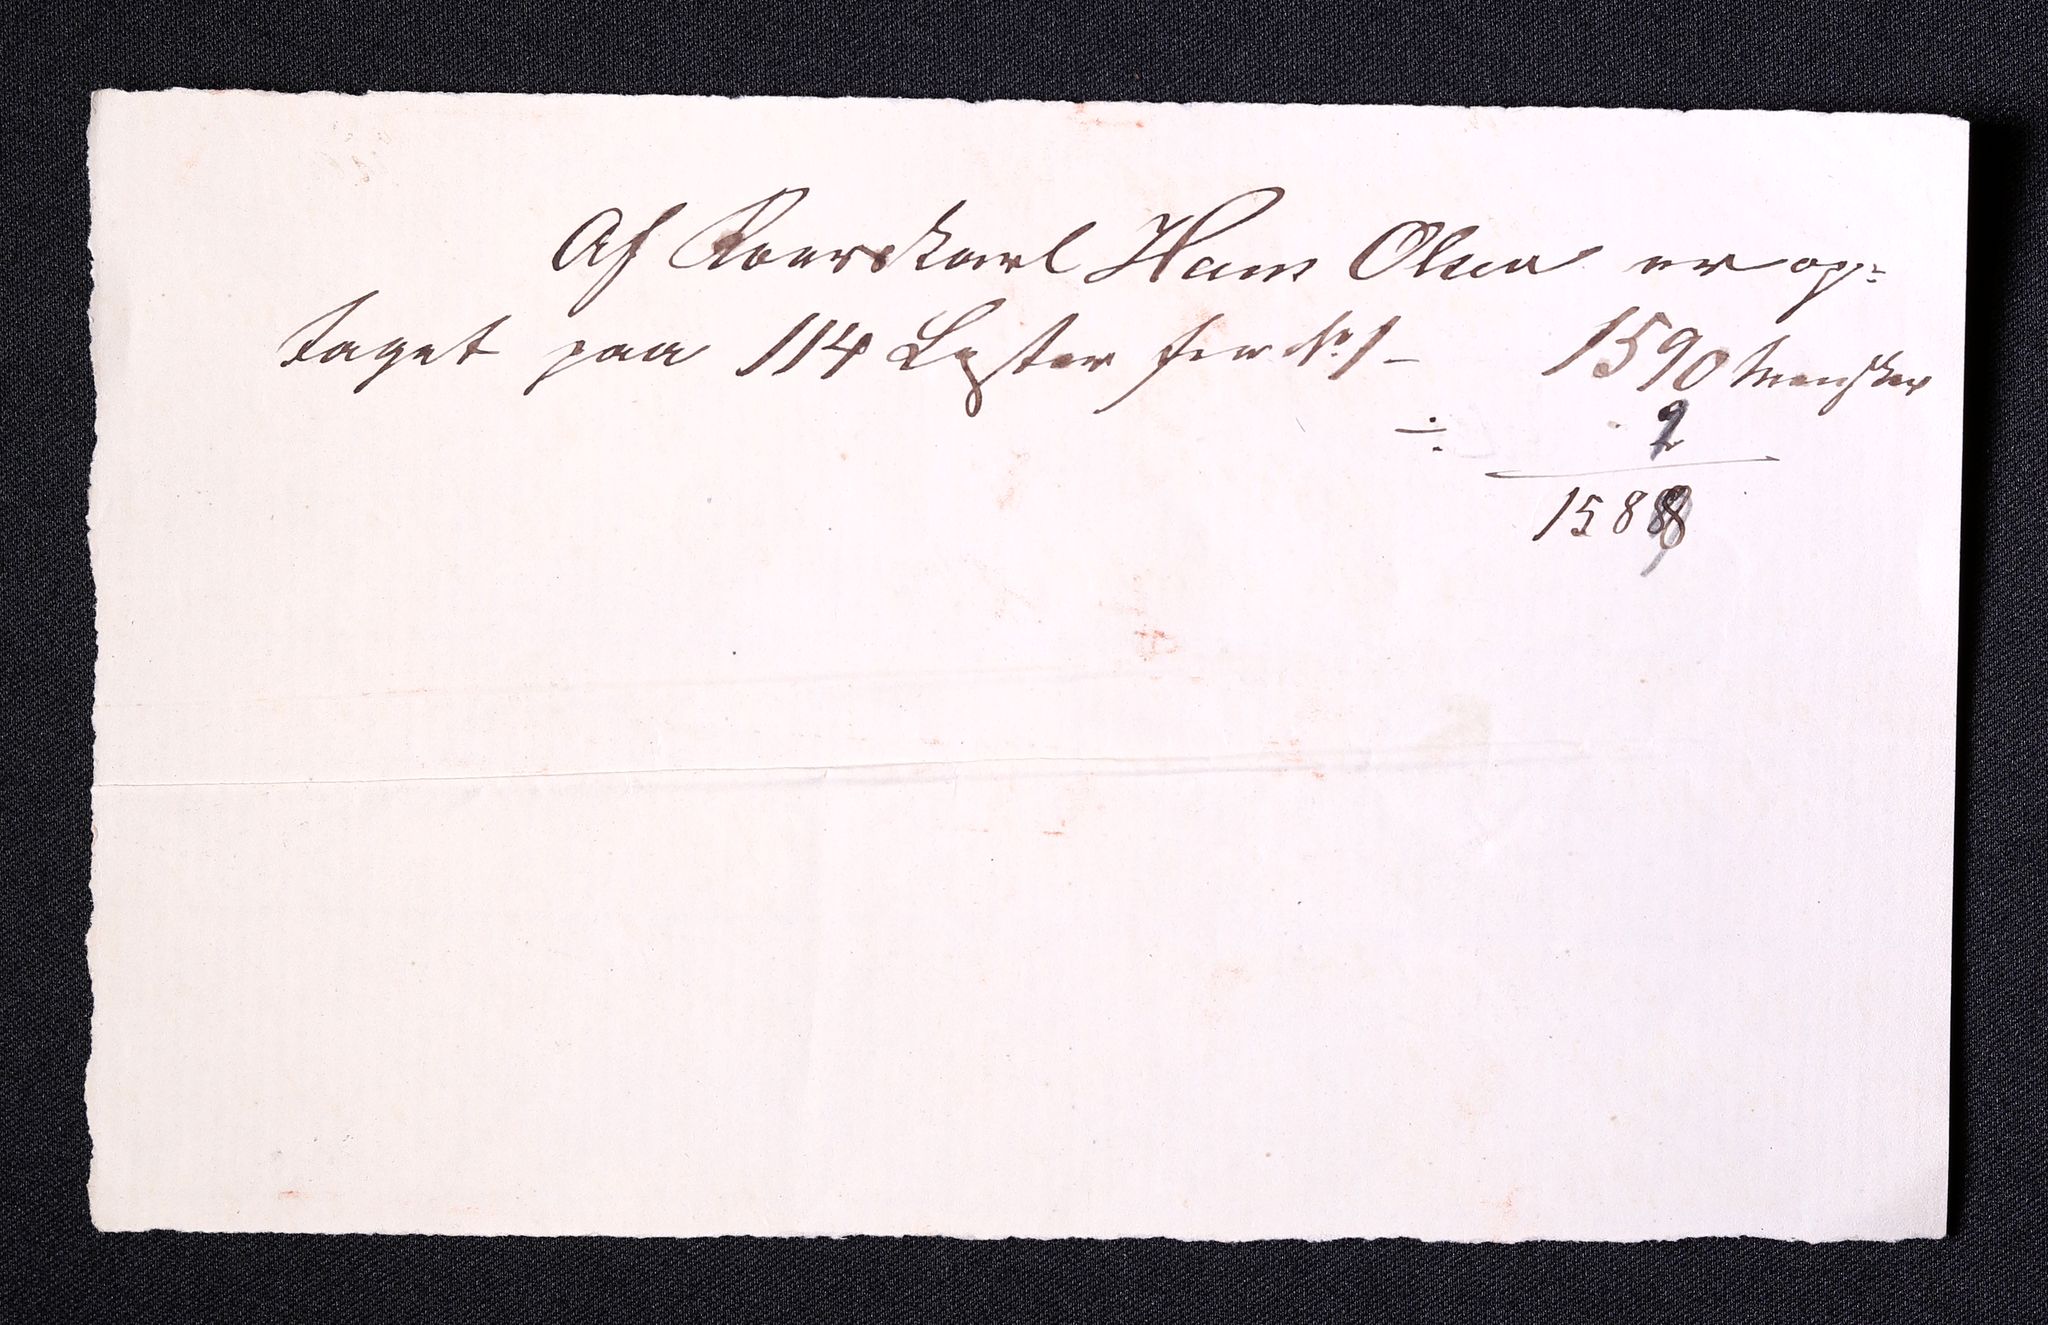 Af Roerskarl Hans Olsen er op=
taget paa 114 Lister fra No 1 – 1590 Mennsker
÷ 2
1588